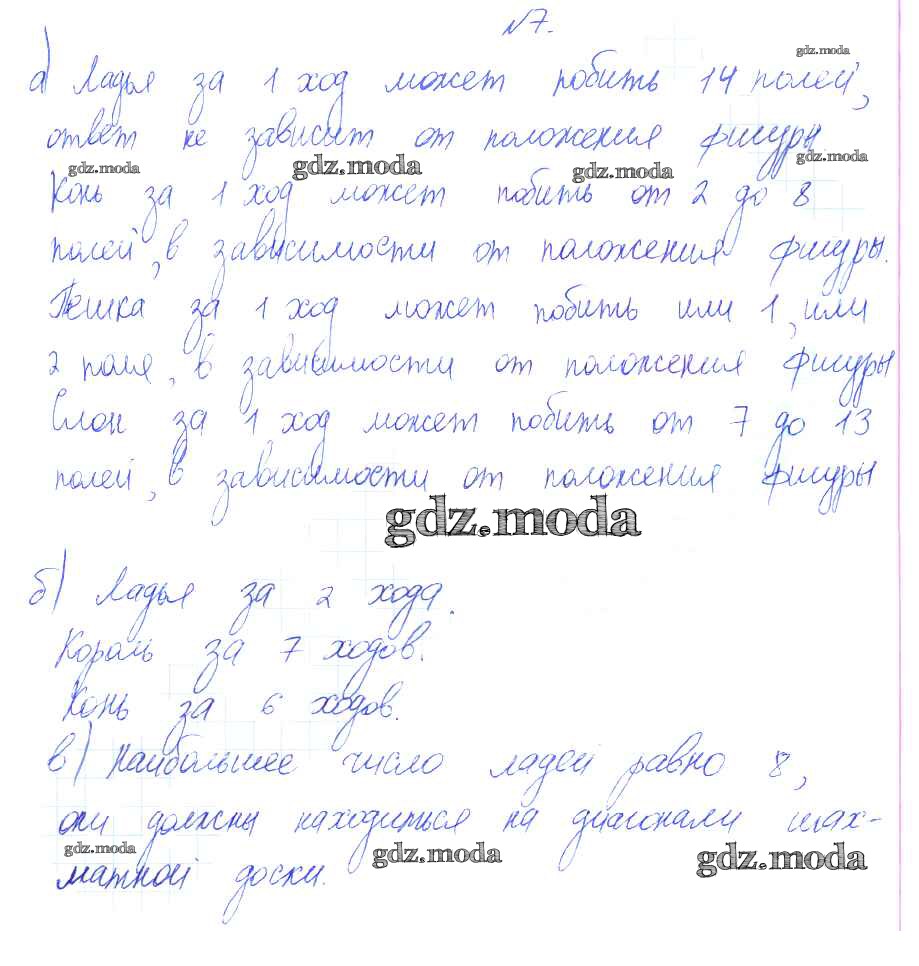 №7.
gdz.moda
а) Ладья за 1 ход может побить 14 полей,
ответ не зависит от положения фигуры
gdz.moda gdz.moda gdz.moda gdz.moda
Конь за 1 ход может побить от 2 до 8
полей, в зависимости от положения фигуры.
Пешка за 1 ход может побить или 1, или
2 поля, в зависимости от положения фигуры
Слон за 1 ход может побить от 7 до 13
полей, в зависимости от положения фигуры
gdz.moda
б) Ладья за 2 хода.
Король за 7 ходов.
Конь за 6 ходов.
в) Наибольшее число ладей равно 8,
они должны находиться на диагонали шах-
gdz.moda gdz.moda gdz.moda
матной доски.